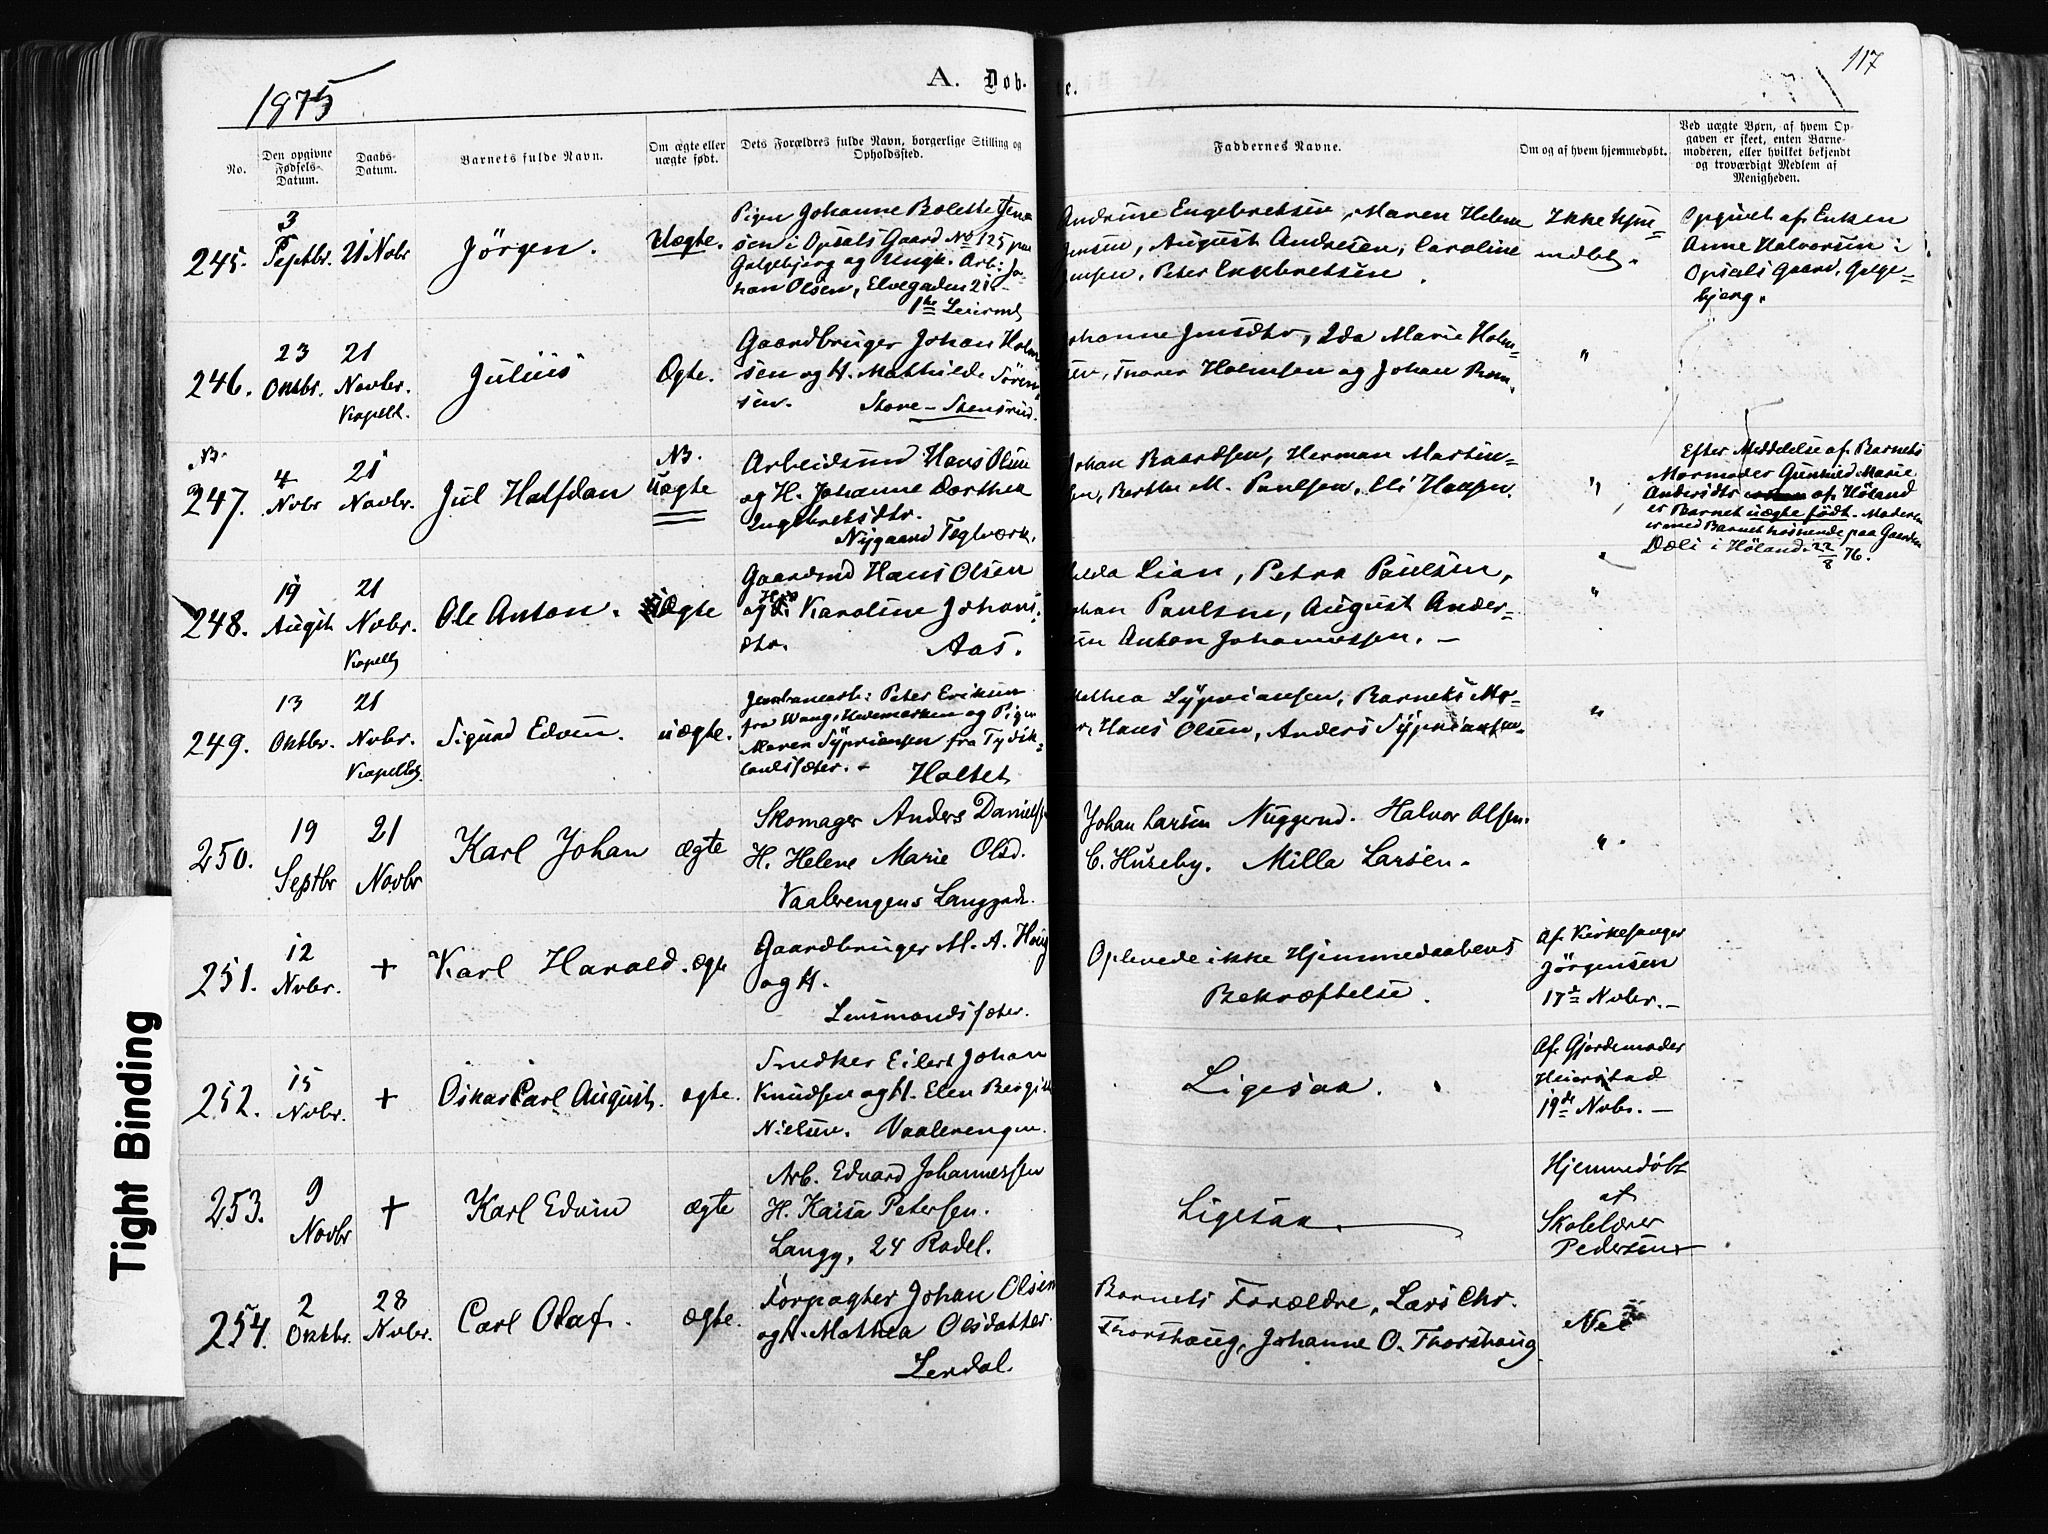 117
1875
A. Døb.
te.
No.
Den opgivne Fødsels-Datum.
Daabs-Datum.
Barnets fulde Navn.
Om ægte eller uægte født.
Dets Forældres fulde Navn, borgerlige Stilling og Opholdssted.
Faddernes Navne.
Om og af hvem hjemmedøbt.
Ved uægte Børn, af hvem Opgaven er skeet, enten Barnemoderen, eller hvilket bekjendt og troværdigt Medlem af Menigheden.
245. 3 Septbr. 21 Novbr Jörgen. Uægte.
Pigen Johanne Bolette Jen-
sen i Opsals Gaard No 125 paa
Galgebjerg og Ungk. Arb: Jo-
han Olsen, Elvegaden 21 -
1ste Leiermd
Andrine Engebretsen, Maren Helene
Jensen, August Andresen, Caroline
Jensen, Peter Engebretsen.
Ikke hjem-
medbt.
Opgivet af Enken
Anne Halvorsen i
Opsals Gaard, Galge-
bjerg.
246. 23 Oktbr. 21 Novbr. Kapellt. Julius Ægte.
Gaardbruger Johan Holm-
sen og H. Mathilde Sören-
sen. Store-Stensrud.
Johanne Jensdtr, Ida Marie Holm-
sen, Thorer Holmsen og Johan Rom-
"
NB. 247. 4 Novbr 21 Novbr. Jul Halfdan NB. uægte
Arbeidsmd Hans Olsen
og H. Johanne Dorthea
Engebretsdtr.
Nygaard Teglværk.
Johan Baardsen, Herman Martin-
sen, Berthe M. Paulsen, Eli Hansen.
"
Efter Meddelelse af Barnets
Mormoder Gunhild Marie
Andersdtr af Höland
er Barnet uægte født. Moderen
er med Barnet hos paa Gaarden
Dæli i Höland. 22/8 76.
248. 19 Augst 21 Nvbr. Kapellt Ole Anton. Ægte
Gaardmd Hans Olsen
og H. Karoline Johans-
dtr. Aas.
Hilda Lian, Petra Paulsen,
Johan Paulsen, August Ander-
sen Anton Johannessen. -
"
249. 13 Oktbr. 21 Nvbr. Kapellet. Sigurd Edvin. uægte.
Jernbanearb: Peter Eriksen
fra Wang, Hedemarken og Pigen
Maren Sypriansen fra Tydsk-
landssæter. - Holtet
Mathea Sypriansen, Barnets Mo-
r, Hans Olsen, Anders Sypriansen-
"
250. 19 Septbr 21 Novbr Karl Johan ægte
Skomager Anders Daniels
H. Helene Marie Olsd.
Vaalerengens Langgade.
Johan Larsen Nuggerud. Halvor Olsen.
C. Huseby. Milla Larsen.
"
251. 12 Nvbr. + Karl Harald. ægte
Gaardbruger M. A. Haug
og H.
Lensmandssæter.
Oplevede ikke Hjemmedaabens
Bekræftelse.
Af Kirkesanger
Jörgensen
17de Nvbr. -
252. 15 Nvbr. + Oskar Carl August. ægte.
Snedker Eilert Johan
Knudsen og H. Elen Bergitte
Nielsen. Vaalerengen.
Ligesaa.
Af Gjordemoder
Heierstad
19de Nvbr. -
253. 9 Novbr + Karl Edvin ægte
Arb. Edvard Johannessen
H. Kaisa Petersen.
Langg, 24 Rodel.
Ligesaa.
Hjemmedøbt
af
Skolelærer
Pedersen
254. 2 Oktbr. 28 Nvbr. Carl Olaf. ægte.
Forpagter Johan Olsen
og H. Mathea Olsdatter.
Lerdal.
Barnets Forældre, Lars Chr.
Thorshaug, Johanne O. Thorshaug
Nei
Tight Binding